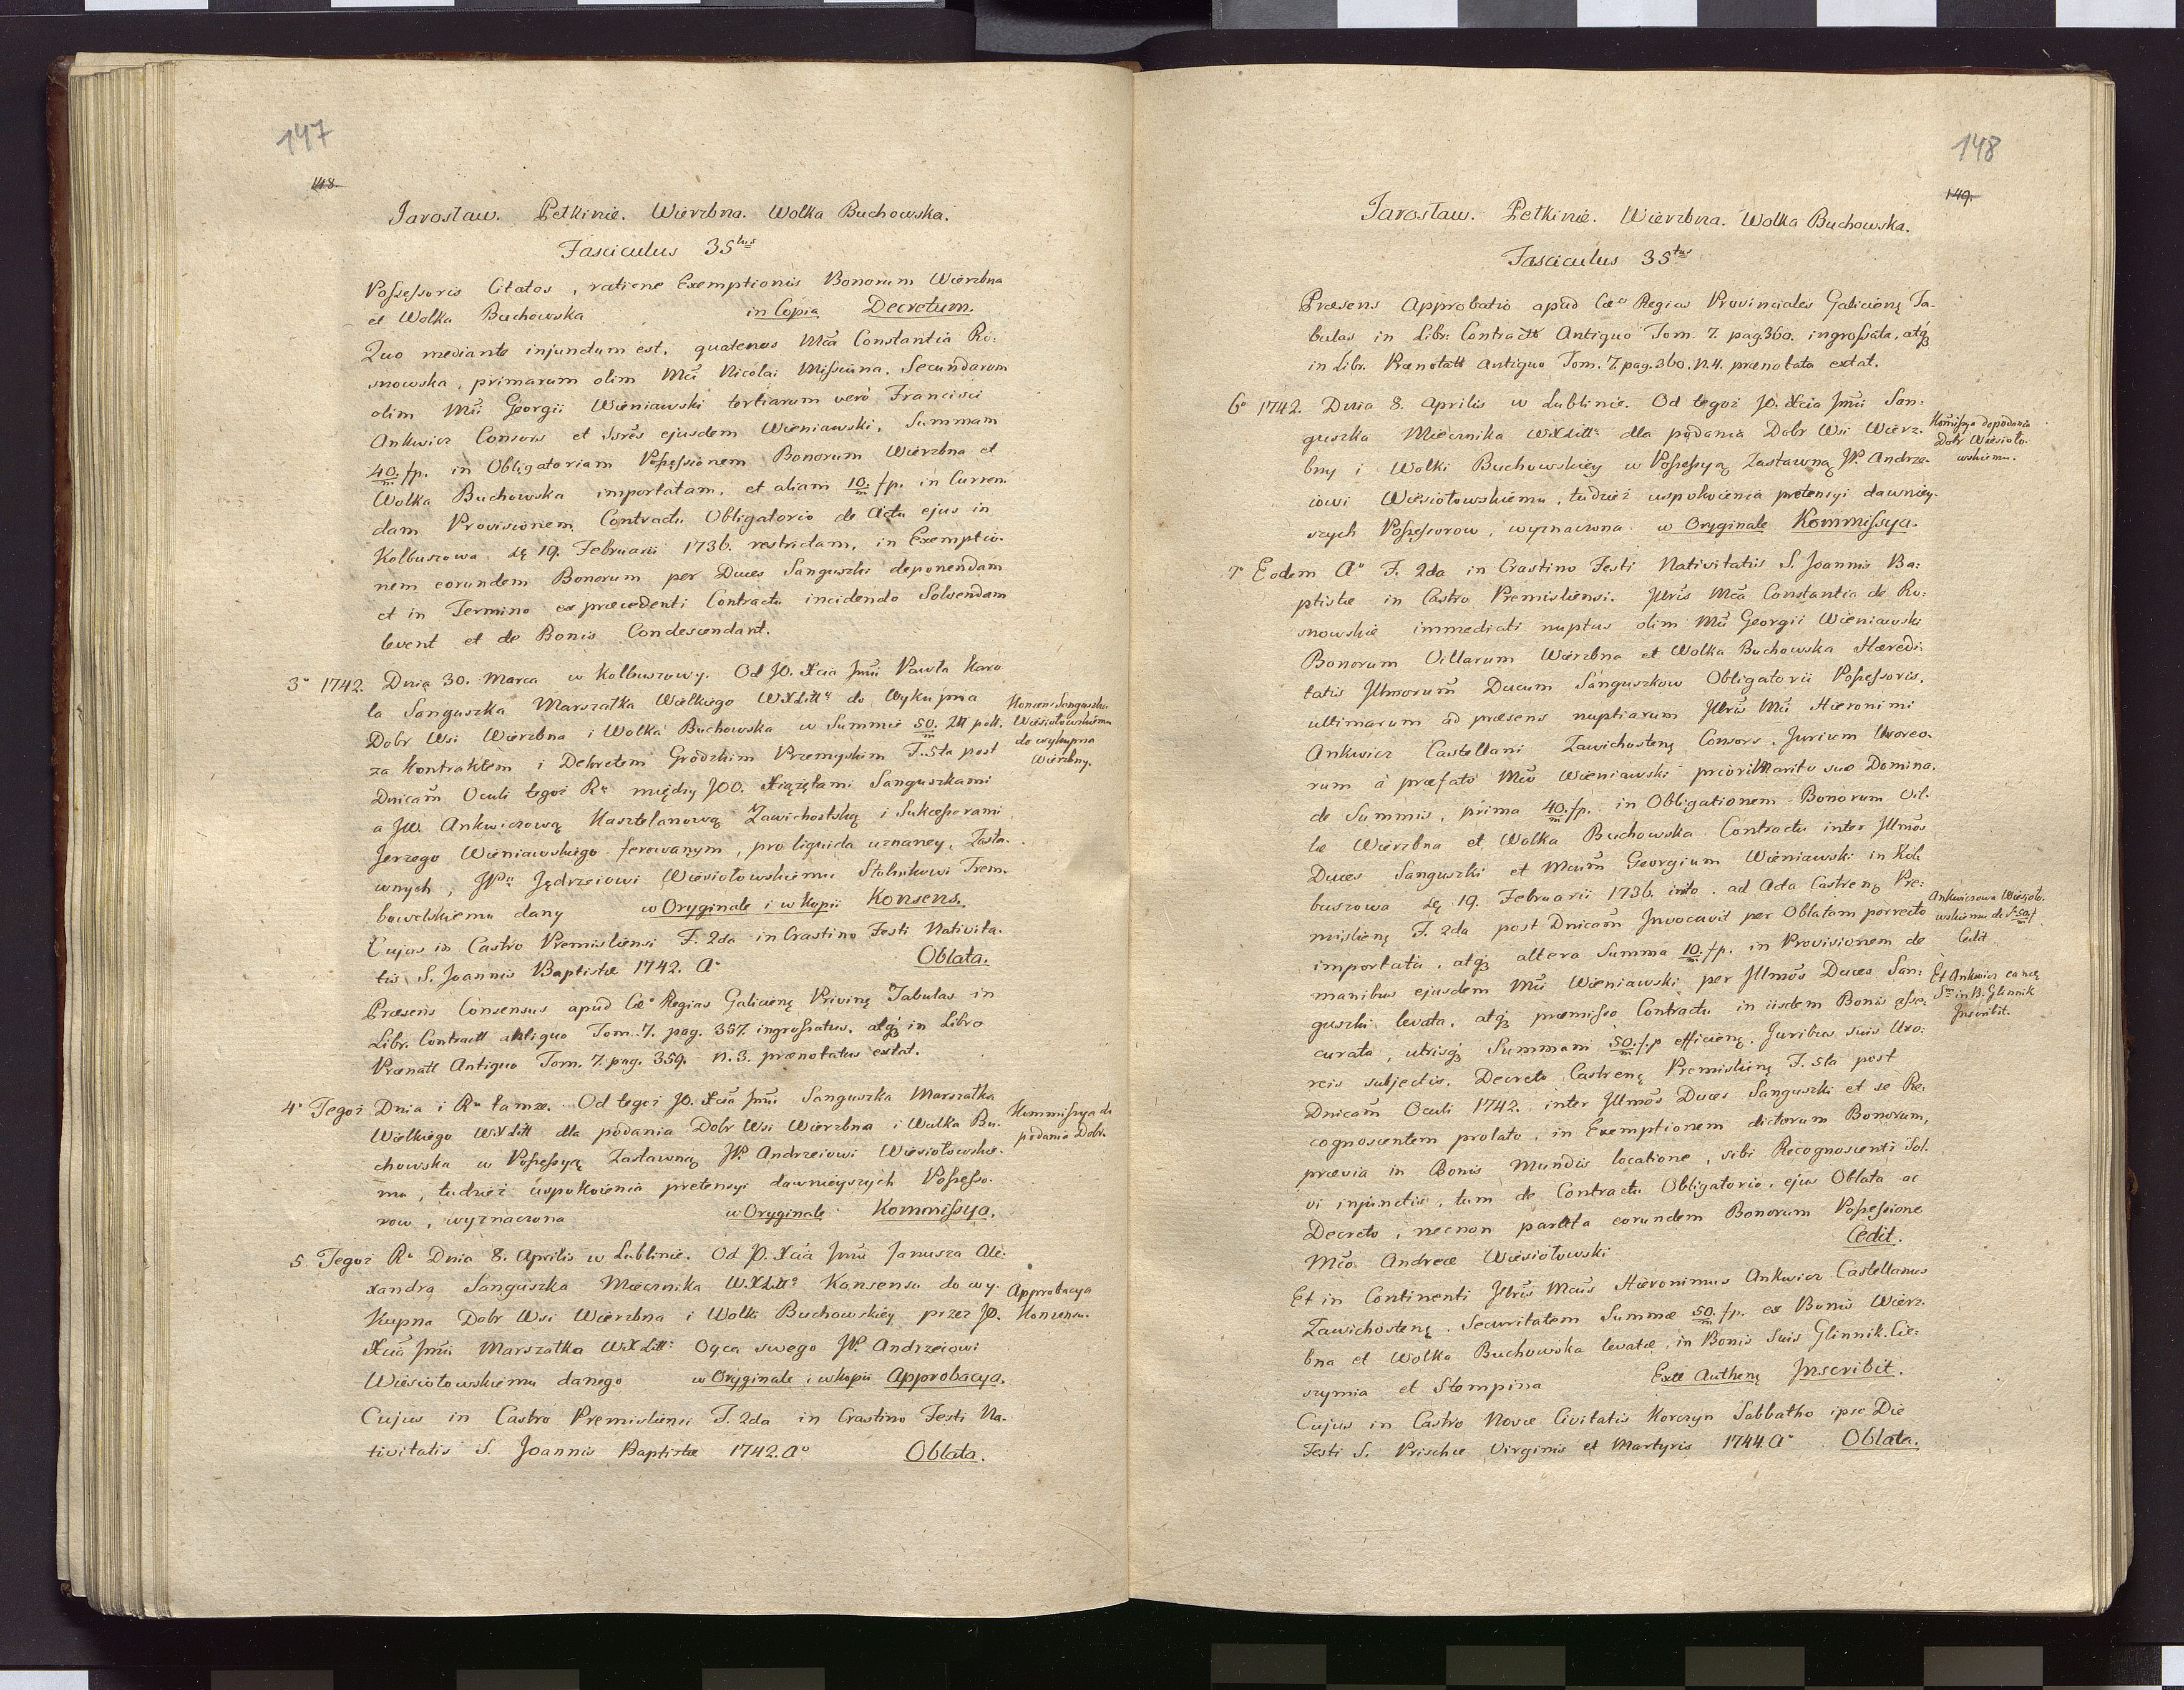 147
148.
Jarosław. Petkinie. Wierzbna. Wolka Buchowska.
Fasciculus 35tus
Possessoris Citatos, ratione Exemptionis Bonorum Wierzbna
et Wolka Buchowska in Copia Decretum.
Quo mediante injunctum est, quatenus Mca Constantia Ro:
snowska, primarum olim Mci Nicolai Misiuna, Secundarum
olim Mci Georgii Wieniawski tertiarum verò Francisci
Ankwicz Consors et Ssres ejusdem Wieniawski, Summam
40/m fp. in Obligatoriam Possessionem Bonorum Wierzbna et
Wolka Buchowska importatam, et aliam 10/m fp. in Curren.
dam Provisionem Contractu Obligatorio de Actu ejus in
Kolbuszowa de 19. Februarii 1736. restrictam, in Exemptio.
nem eorundem Bonorum per Duces Sanguszki deponendam
et in Termino ex præcedenti Contractu incidendo Solvendam
levent et de Bonis Condescendant.
3° 1742. Dnia 30. Marca w Kolbuszowy. Od JO. Xcia Jmci Pawła Karo
la Sanguszka Marszałka Wielkiego WXLitt° do Wykupna
Dobr Wsi Wierzbna i Wolka Buchowska w Summie 50/m Złł pol.
za Kontraktem i Dekretem Grodzkim Przemyskim F. 5ta post
Dnicam Oculi tegoż Ru między JOO. Xiążętami Sanguszkami
a JW. Ankwiczową Kasztelanową Zawichostską i Sukcessorami
Jerzego Wieniawskiego ferowanym, pro liquida uznaney, Zasta.
wnych, JPu Jędrzeiowi Wiesiołowskiemu Stolnikowi Trem.
bowelskiemu dany w Oryginale i w kopii Konsens.
Konsens Sanguszka
Wiesiołowskiemu
do wykupna
Wierzbny.
Cujus in Castro Premisliensi F. 2da in Crastino Festi Nativita.
tis S. Joannis Baptistæ 1742. A° Oblata.
Præsens Consensus apud Cæs Regias Galicienę Privinę Tabulas in
Libr. Contractt antiquo Tom. 7. pag. 357. ingrossatus, atqȝ in Libro
Prænott Antiquo Tom. 7. pag. 359. n. 3. prænotatus extat.
4° Tegoż Dnia i Ru tamże. Od tegoż JO. Xcia Jmci Sanguszka Marszałka
Wielkiego WXLitt dla podania Dobr Wsi Wierzbna i Wolka Bu.
chowska w Possessyą Zastawną JP. Andrzeiowi Wiesiołowskie.
mu, tudzież uspokoienia pretensyi dawnieyszych Possesso.
row, wyznaczona w Oryginale Kommissya.
Kommissya do
podania Dobr.
5 Tegoż Ru Dnia 8. Aprilis w Lublinie. Od JO. Xcia Jmci Janusza Ale.
xandra Sanguszka Miecznika W.XLitt° Konsensu do wy.
kupna Dobr Wsi Wierzbna i Wolki Buchowskiey przez JO.
Xcia Jmci Marszałka WXLitt: Oyca swego JP. Andrzeiowi
Wiesiołowskiemu danego w Oryginale i w kopii Approbacya.
Approbacya
Konsensu.
Cujus in Castro Premisliensi F. 2da in Crastino Festi Na.
tivitatis S. Joannis Baptistæ 1742. A° Oblata.
148
149.
Jarosław. Petkinie. Wierzbna. Wolka Buchowska.
Fasciculus 35tus
Præsens Approbatio apud Cæs Regias Provinciales Galicienę Ta-
bulas in Libr. Contractt Antiquo Tom. 7. pag. 360. ingrossata, atqȝ
in Libr. Prænotatt Antiquo Tom. 7. pag. 360. N. 4. prænotata extat.
6° 1742. Dnia 8. Aprilis w Lublinie. Od tegoż JO. Xcia Jmci San:
guszka Miecznika WXLitt° dla podania Dobr Wsi Wierz.
bny i Wolki Buchowskiey w Possessyą Zastawną JP. Andrze.
iowi Wiesiołowskiemu, tudzież uspokoienia pretensyi dawniey.
szych Possessorow, wyznaczona w Oryginale Kommissya.
Komissya do podania
Dobr Wiesioło.
wskiemu.
7° Eodem A° F. 2da in Crastino Festi Nativitatis S. Joannis Ba:
ptistæ in Castro Premisliensi. Illris Mca Constantia de Ro:
snowskie immediati nuptus olim Mci Georgii Wieniawski
Bonorum Villarum Wierzbna et Wolka Buchowska Hæredi:
tatis Illmorum Ducum Sanguszkow Obligatorii Possessoris,
ultimarum ad præsens nuptiarum Illris Mci Hieronimi
Ankwicz Castellani Zawichostenę Consors, Jurium Uxoreo.
rum à præfato Mco Wieniawski priori Marito suo Domina.
de Summis, prima 40/m fp. in Obligationem Bonorum Vil.
læ Wierzbna et Wolka Buchowska Contractu inter Illmos
Duces Sanguszki et Mcum Georgium Wieniawski in Kol
buszowa de 19. Februarii 1736. inito, ad Acta Castrenę Pre:
mislienę F. 2da post Dnicam Invocavit per Oblatam porrecto
importatis, atqȝ altera Summa 10/m fp. in Provisionem de
manibus ejusdem Mci Wieniawski per Illmos Duces San:
guszki levata, atqȝ præmisso Contractu in iisdem Bonis asse:
curata, utrisqȝ Summam 50/m fp efficienę. Juribus suis Uxo:
reis subjectis. Decreto Castrenę Premislienę F. 5ta post
Dnicam Oculi 1742. inter Illmos Duces Sanguszki et se Re:
cognoscentem prolato, in Exemptionem dictorum Bonorum,
prævia in Bonis Mundis locatione, sibi Recognoscenti Sol.
vi injunctis, tum de Contractu Obligatorio, ejus Oblata ac
Decreto, necnon parata eorundem Bonorum Possessione
Mco Andreæ Wiesiołowski Cedit.
Ankwiczowa Wiesioło.
wskiemu de S. 50/m f
Cedit
Et in Continenti Illris Mcus Hieronimus Ankwicz Castellanus
Zawichostenę. Securitatem Summæ 50/m fp. ex Bonis Wierz.
bna et Wolka Buchowska levatæ, in Bonis Suis Glinnik. Cie:
szymia et Stempina Extt Authenę Inscribit.
Et Ankwicz eandę
Sm in B. Glinnik
Inscribit.
Cujus in Castro Novæ Civitatis Korczyn Sabbatho ipso Die
Festi S. Priscæ Virginis et Martyris 1744. A° Oblata.